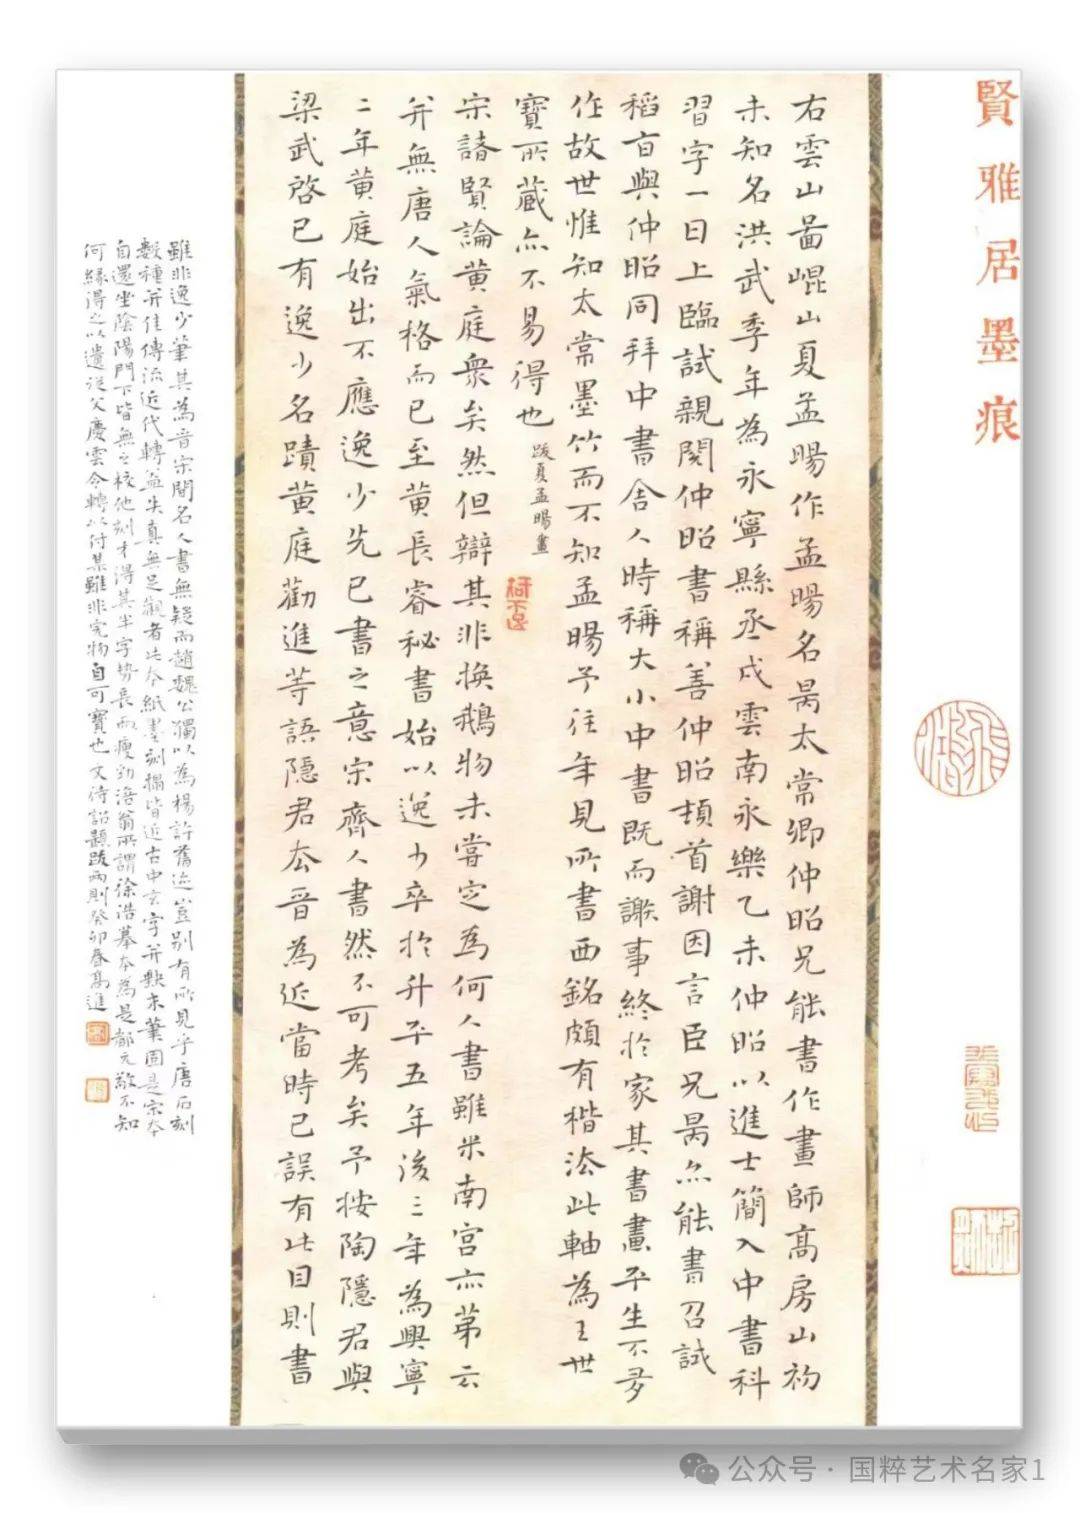 賢雅居墨痕
右雲山畵崐山夏孟暘作孟暘名昺太常卿仲昭兄能書作畫師高房山初
未知名洪武季年為永寧縣丞戍雲南永樂乙未仲昭以進士簡入中書科
習字一日上臨試親閱仲昭書稱善仲昭頓首謝因言臣兄昺亦能書召試
稱旨與仲昭同拜中書舍人時稱大小中書既而謝事終於家其書畫平生不多
作故世惟知太常墨竹而不知孟暘予往年見所書西銘頗有楷法此軸為王世
寶所藏亦不易得也 跋夏孟暘畫
宗諸賢論黄庭衆矣然但辯其非换鵝物未嘗定為何人書雖米南宫亦第云
并無唐人氣格而已至黄長睿秘書始以逸少卒於升平五年後三年為興寧
二年黄庭始出不應逸少先已書之意宋齊人書然不可考矣予按陶隱君與
梁武啓已有逸少名蹟黄庭勸進等語隱君去晋為近當時已誤有此目則書
雖非逸少筆其為晋宋間名人書無疑而趙魏公獨以為楊許舊迹豈别有所見乎唐石刻
數種并佳傳流近代轉益失真無足觀者此本紙墨刻搨皆近古中玄字并缺末筆固是宋本
自還坐陰陽門下皆無之校他刻才得其半字勢長而瘦勁涪翁所謂徐浩摹本為是都元敬不知
何緣得之以遺從父慶雲今轉以付某雖非完物自可寶也 文待詔題跋两則癸卯春高進
公众号·国粹艺术名家1